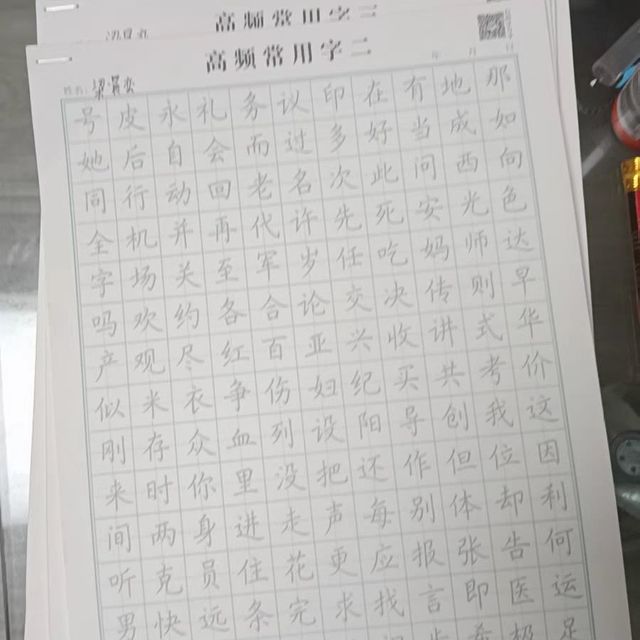 高频常用字三
高频常用字二
姓名:
年 月 日
号皮永礼务议印在有地那
她后自会而过多好当成如
同行动回老名次此问西向
全机并再代许先死安光色
字场关至军岁任吃妈师达
吗欢约各合论交决传则早
产观尽红百亚兴收讲式华
似米衣争伤妇纪买共考价
刚存众血列设阳导创我这
来时你里没把还作但位因
间两身进走声每别体却利
听克员住花更应报张告何
男快远条完求找言即医运